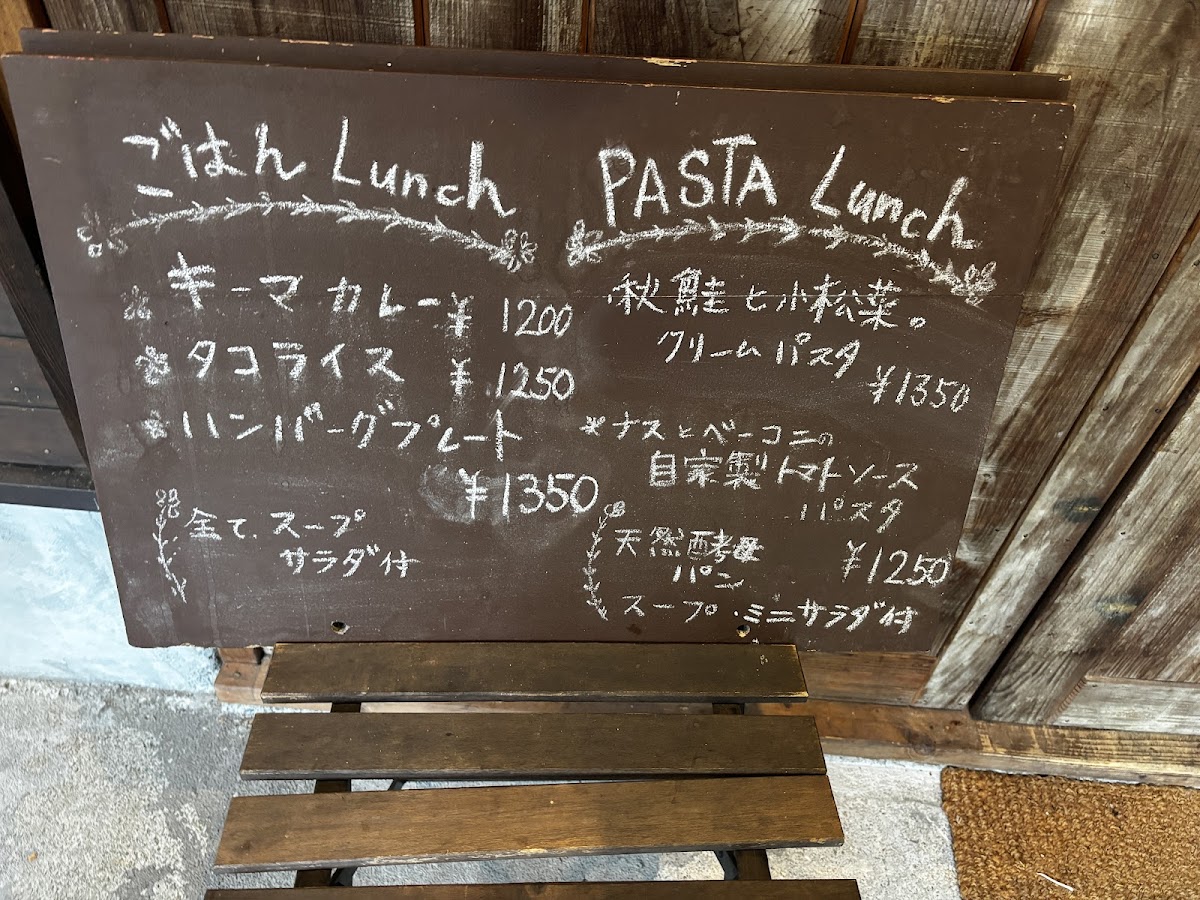 ごはん Lunch
キーマカレー ¥1200
タコライス ¥1250
ハンバーグプレート
¥1350
全て、スープ
サラダ付
PASTA Lunch
秋鮭と小松菜。
クリームパスタ
¥1350
＊ナスとベーコンの
自家製トマトソース
パスタ
¥1250
天然酵母
パン
スープ・ミニサラダ付